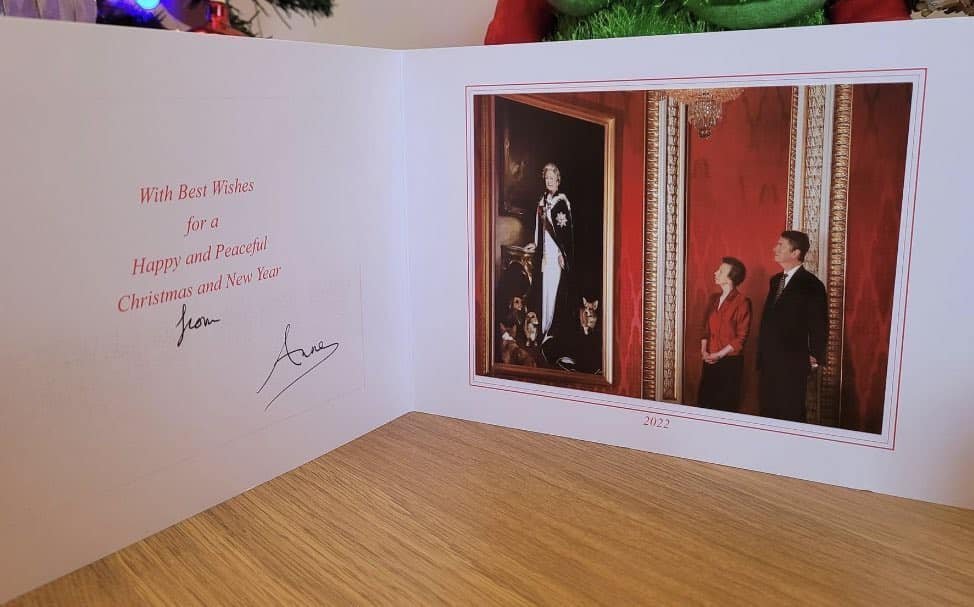 With Best Wishes
for a
Happy and Peaceful
Christmas and New Year
from
Anne
2022